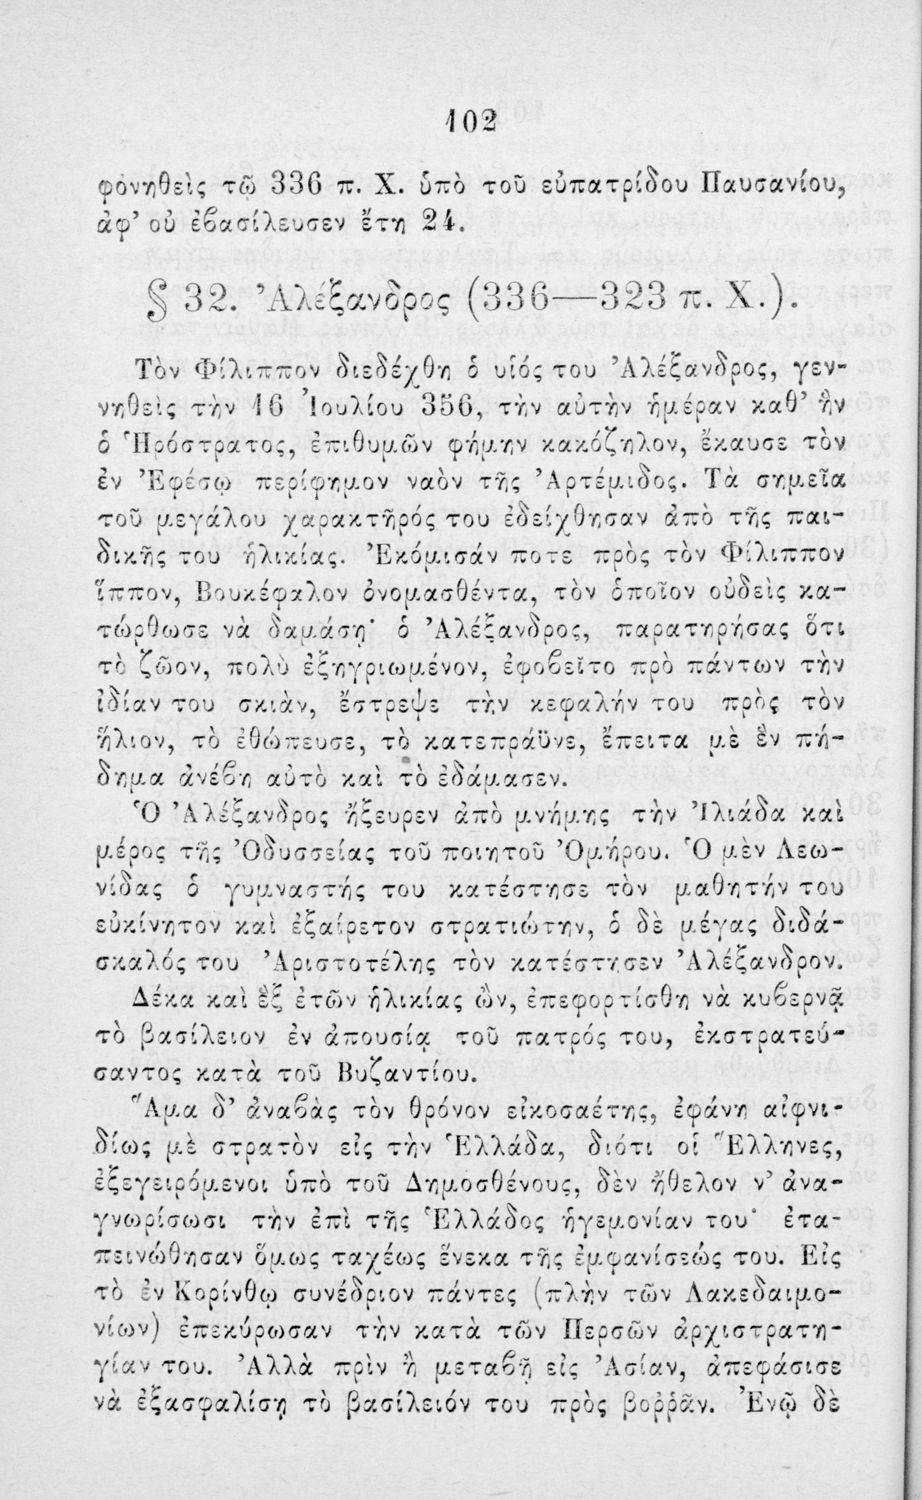 102
φονηθεὶς τῷ 336 π. Χ. ὑπὸ τοῦ εὐπατρίδου Παυσανίου,
ἀφ’ οὗ ἐβασίλευσεν ἔτη 24.
§ 32. Ἀλέξανδρος (336—323 π. Χ.).
Τὸν Φίλιππον διεδέχθη ὁ υἱός του Ἀλέξανδρος, γεν-
νηθεὶς τὴν 16 Ἰουλίου 356, τὴν αὐτὴν ἡμέραν καθ’ ἣν
ὁ Ἡρόστρατος, ἐπιθυμῶν φήμην κακόζηλον, ἔκαυσε τὸν
ἐν Ἐφέσῳ περίφημον ναὸν τῆς Ἀρτέμιδος. Τὰ σημεῖα
τοῦ μεγάλου χαρακτῆρός του ἐδείχθησαν ἀπὸ τῆς παι-
δικῆς του ἡλικίας. Ἐκόμισάν ποτε πρὸς τὸν Φίλιππον
ἵππον, Βουκέφαλον ὀνομασθέντα, τὸν ὁποῖον οὐδεὶς κα-
τώρθωσε νὰ δαμάσῃ· ὁ Ἀλέξανδρος, παρατηρήσας ὅτι
τὸ ζῶον, πολὺ ἐξηγριωμένον, ἐφοβεῖτο πρὸ πάντων τὴν
ἰδίαν του σκιὰν, ἔστρεψε τὴν κεφαλήν του πρὸς τὸν
ἥλιον, τὸ ἐθώπευσε, τὸ κατεπράϋνε, ἔπειτα μὲ ἓν πή-
δημα ἀνέβη αὐτὸ καὶ τὸ ἐδάμασεν.
Ὁ Ἀλέξανδρος ἤξευρεν ἀπὸ μνήμης τὴν Ἰλιάδα καὶ
μέρος τῆς Ὀδυσσείας τοῦ ποιητοῦ Ὁμήρου. Ὁ μὲν Λεω-
νίδας ὁ γυμναστής του κατέστησε τὸν μαθητήν του
εὐκίνητον καὶ ἐξαίρετον στρατιώτην, ὁ δὲ μέγας διδά-
σκαλός του Ἀριστοτέλης τὸν κατέστησεν Ἀλέξανδρον.
Δέκα καὶ ἓξ ἐτῶν ἡλικίας ὢν, ἐπεφορτίσθη νὰ κυβερνᾷ
τὸ βασίλειον ἐν ἀπουσίᾳ τοῦ πατρός του, ἐκστρατεύ-
σαντος κατὰ τοῦ Βυζαντίου.
Ἅμα δ’ ἀναβὰς τὸν θρόνον εἰκοσαέτης, ἐφάνη αἰφνι-
δίως μὲ στρατὸν εἰς τὴν Ἑλλάδα, διότι οἱ Ἕλληνες,
ἐξεγειρόμενοι ὑπὸ τοῦ Δημοσθένους, δὲν ἤθελον ν’ ἀνα-
γνωρίσωσι τὴν ἐπὶ τῆς Ἑλλάδος ἡγεμονίαν του· ἐτα-
πεινώθησαν ὅμως ταχέως ἕνεκα τῆς ἐμφανίσεώς του. Εἰς
τὸ ἐν Κορίνθῳ συνέδριον πάντες (πλὴν τῶν Λακεδαιμο-
νίων) ἐπεκύρωσαν τὴν κατὰ τῶν Περσῶν ἀρχιστρατη-
γίαν του. Ἀλλὰ πρὶν ἢ μεταβῇ εἰς Ἀσίαν, ἀπεφάσισε
νὰ ἐξασφαλίσῃ τὸ βασίλειόν του πρὸς βοῤῥᾶν. Ἐνῷ δὲ